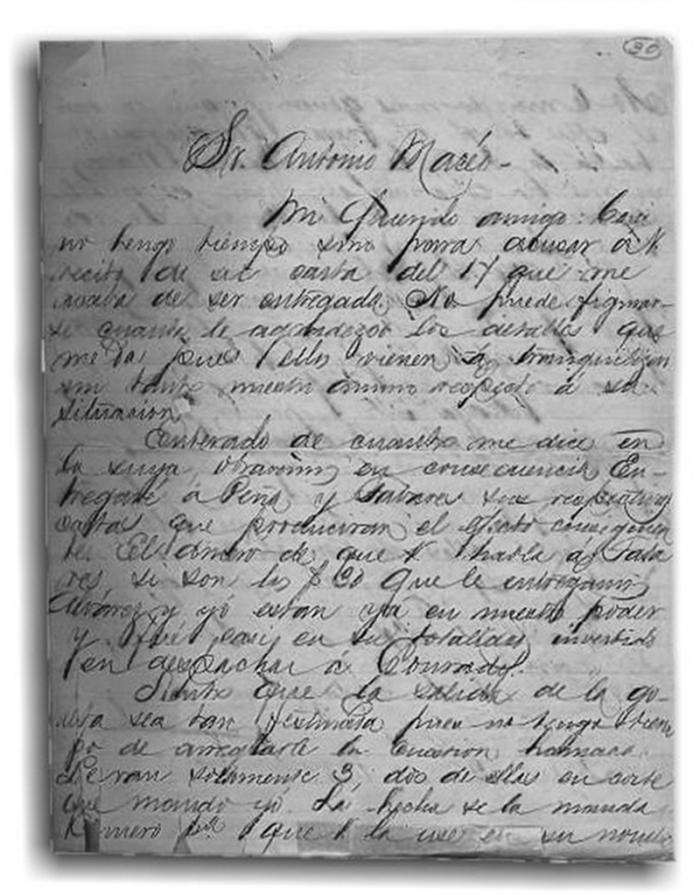 30
Sr. Antonio Maceo-
Mi Querido amigo: Casi
no tengo tiempo sino para acusar á V.
recibo de su carta del 14 que me
acaba de ser entregada. No puede figurar-
se cuanto le agradezco los detalles que
me da pues ellos vienen á tranquilizar
un tanto nuestro ánimo respecto á su
situacion.
Enterado de cuanto me dice en
la suya, obraremos en consecuencia. En-
tregaré á Peña y Tabares sus respectivas
cartas que produciran el efecto consiguien
te. El dinero de que V. habla á Taba
res, si son los $ que le entregamos
Alvarez y yó estan ya en nuestro poder
y fué casi en su totalidad invertido
en despachar á Conrado.
Siento que la salida de la go-
leta sea tan pues no tengo tiem
po de arreglarle la
Le van solamente 3, dos de ellas en
que mando yó. La hecha se la manda
que V. la use en su